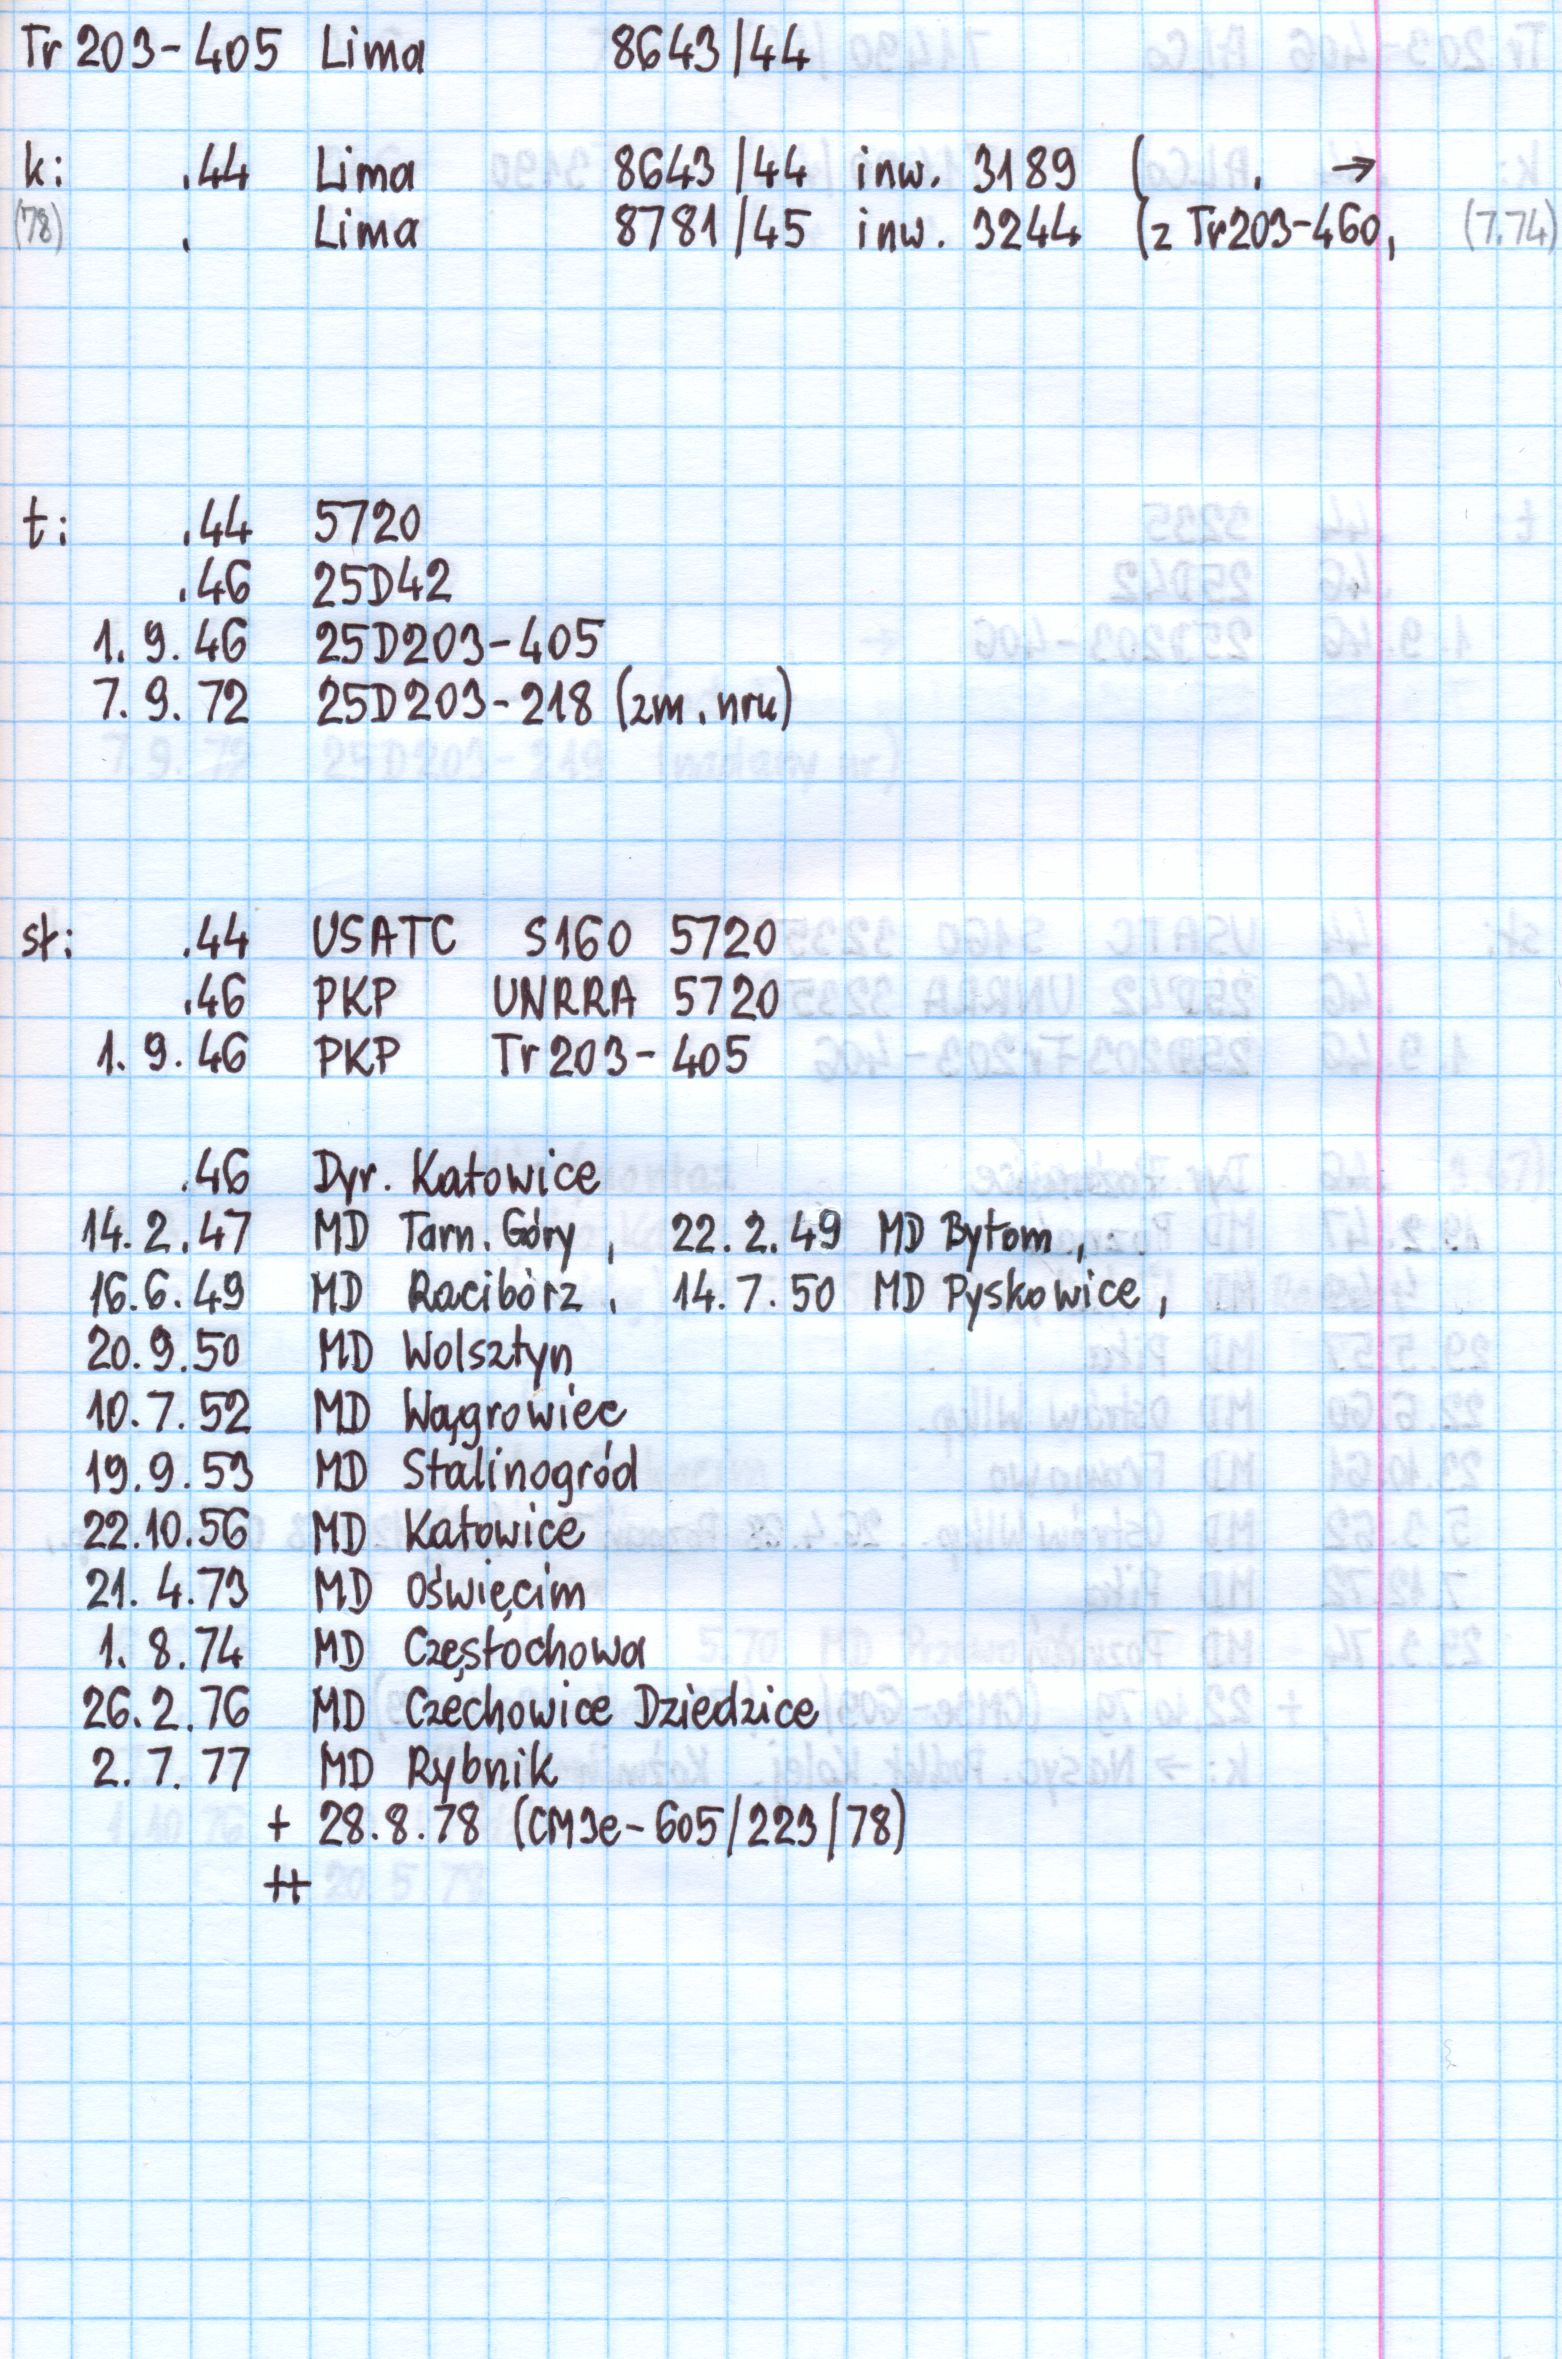 Tr 203-405 Lima 8643/44
k: .44 Lima 8643/44 inw. 3189 ( . →
(78) . Lima 8781/45 inw. 3244 (z Tr203-460, (7.74)
t: .44 5720
.46 25D42
1. 9. 46 25D203-405
7. 9. 72 25D203-218 (zm. nru)
sł: .44 USATC S160 5720
.46 PKP UNRRA 5720
1. 9. 46 PKP Tr203-405
.46 Dyr. Katowice
14. 2. 47 MD Tarn. Góry, 22. 2. 49 MD Bytom,
16. 6. 49 MD Racibórz, 14. 7. 50 MD Pyskowice,
20. 9. 50 MD Wolsztyn
10. 7. 52 MD Wągrowiec
19. 9. 53 MD Stalinogród
22.10.56 MD Katowice
21. 4. 73 MD Oświęcim
1. 8. 74 MD Częstochowa
26. 2. 76 MD Czechowice Dziedzice
2. 7. 77 MD Rybnik
+ 28.8.78 (CM3e-605/223/78)
++